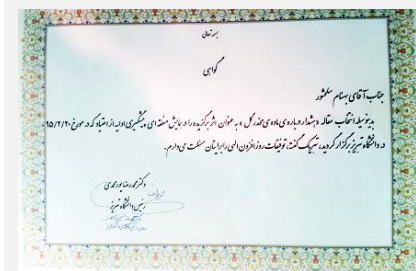 بسمه تعالی
گواهی
جناب آقای بهنام سلمشور
بدینوسیله انتخاب مقاله « هشدار درباره‌ی ماده‌ی مخدر گل » به عنوان اثر برگزیده را در همایش منطقه ای پیشگیری اولیه از اعتیاد که در مورخ ۹۵/۲/۲۰
در دانشگاه تبریز برگزار گردید، تبریک گفته توفیقات روز افزون الهی را برایتان مسئلت می دارم.
دکتر محمدرضا پورمحمدی
رئیس دانشگاه تبریز